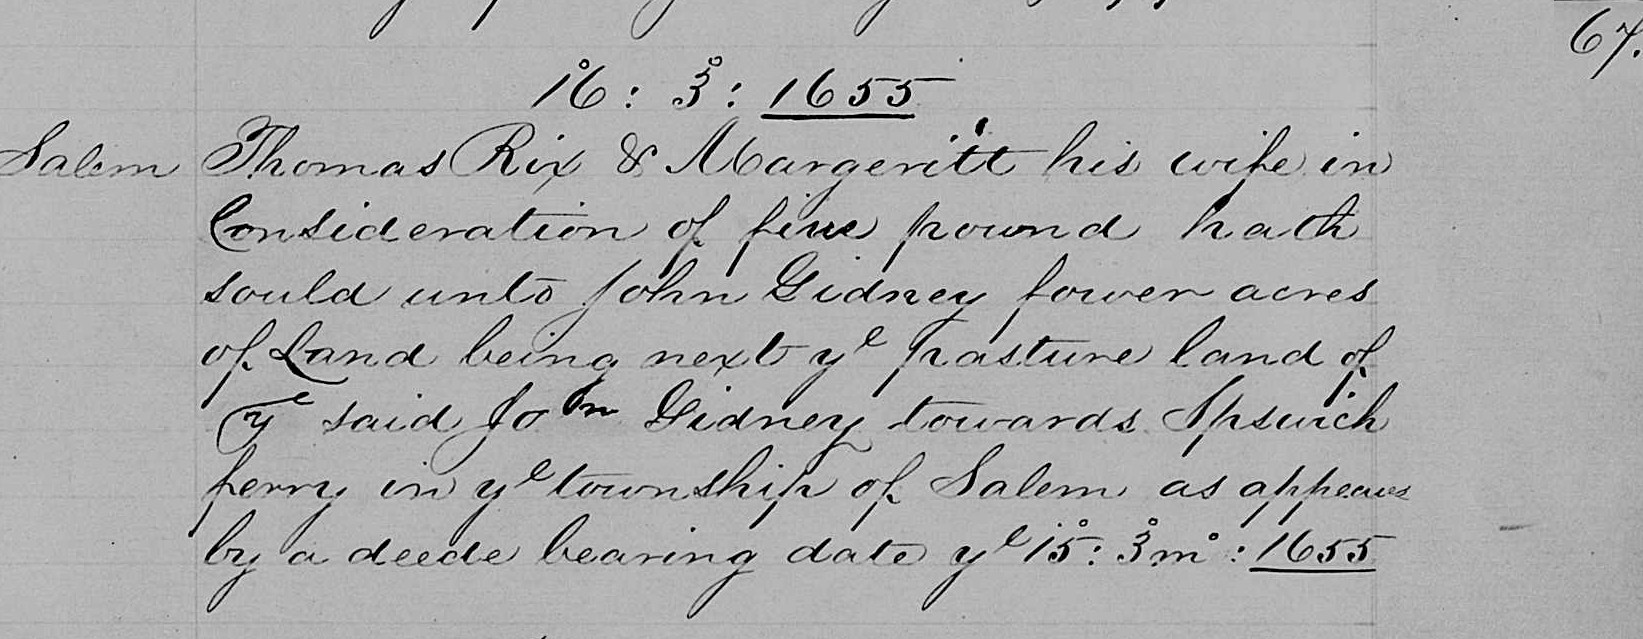 67.
1̊6 : 3̊ : 1655
Salem Thomas Rix & Margeritt his wife in
Consideration of five pound hath
sould unto John Gidney fower acres
of Land being next yᵉ pasture land of
yᵉ said John Gidney towards Ipswich
ferry in yᵉ township of Salem as appeares
by a deede bearing date yᵉ 15̊ : 3̊ m° : 1655